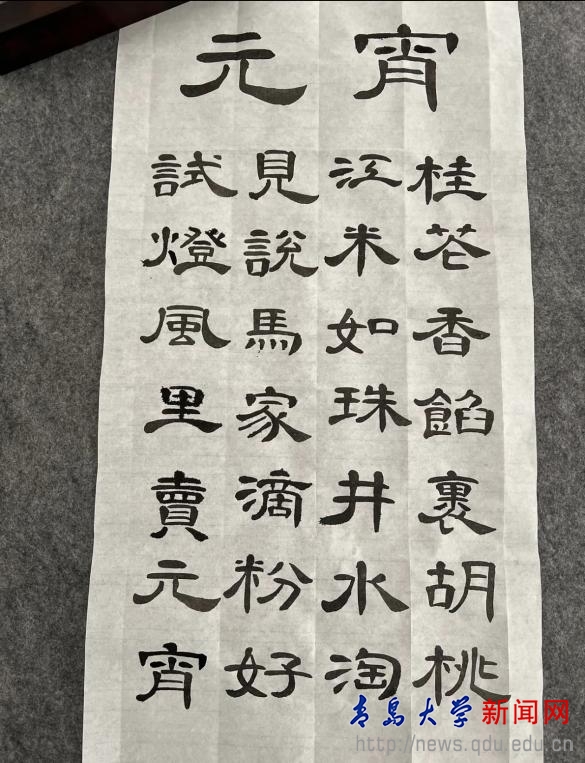 元宵
桂花香餡裹胡桃
江米如珠井水淘
見說馬家滴粉好
試燈風里賣元宵
青岛大学新闻网
http://news.qdu.edu.cn